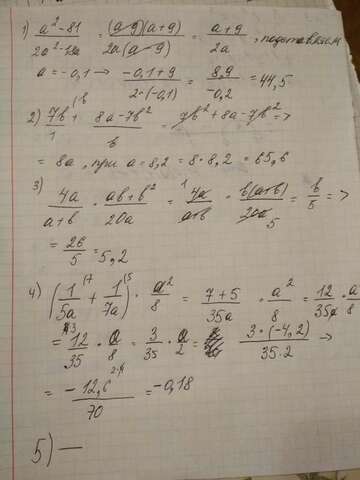 1) a²-81/2a²-18a = (a-9)(a+9)/2a(a-9) = a+9/2a, подставим
a = -0,1 → -0,1+9/2·(-0,1) = 8,9/-0,2 = 44,5
2) 7b/1 (b + 8a-7b²/b = 7b²+8a-7b² =>
= 8a, при a=8,2 = 8·8,2 = 65,6
3) 4a/a+b · ab+b²/20a = 4a/a+b · b(a+b)/20a 5 = b/5 =>
= 26/5 = 5,2
4) (1/5a (7 + 1/7a (5) · a²/8 = 7+5/35a · a²/8 = 12/35a · a/8
= 12/35 · a/8 = 3/35 · a/2 = 3·(-4,2)/35·2 →
= -12,6/70 = -0,18
5) —